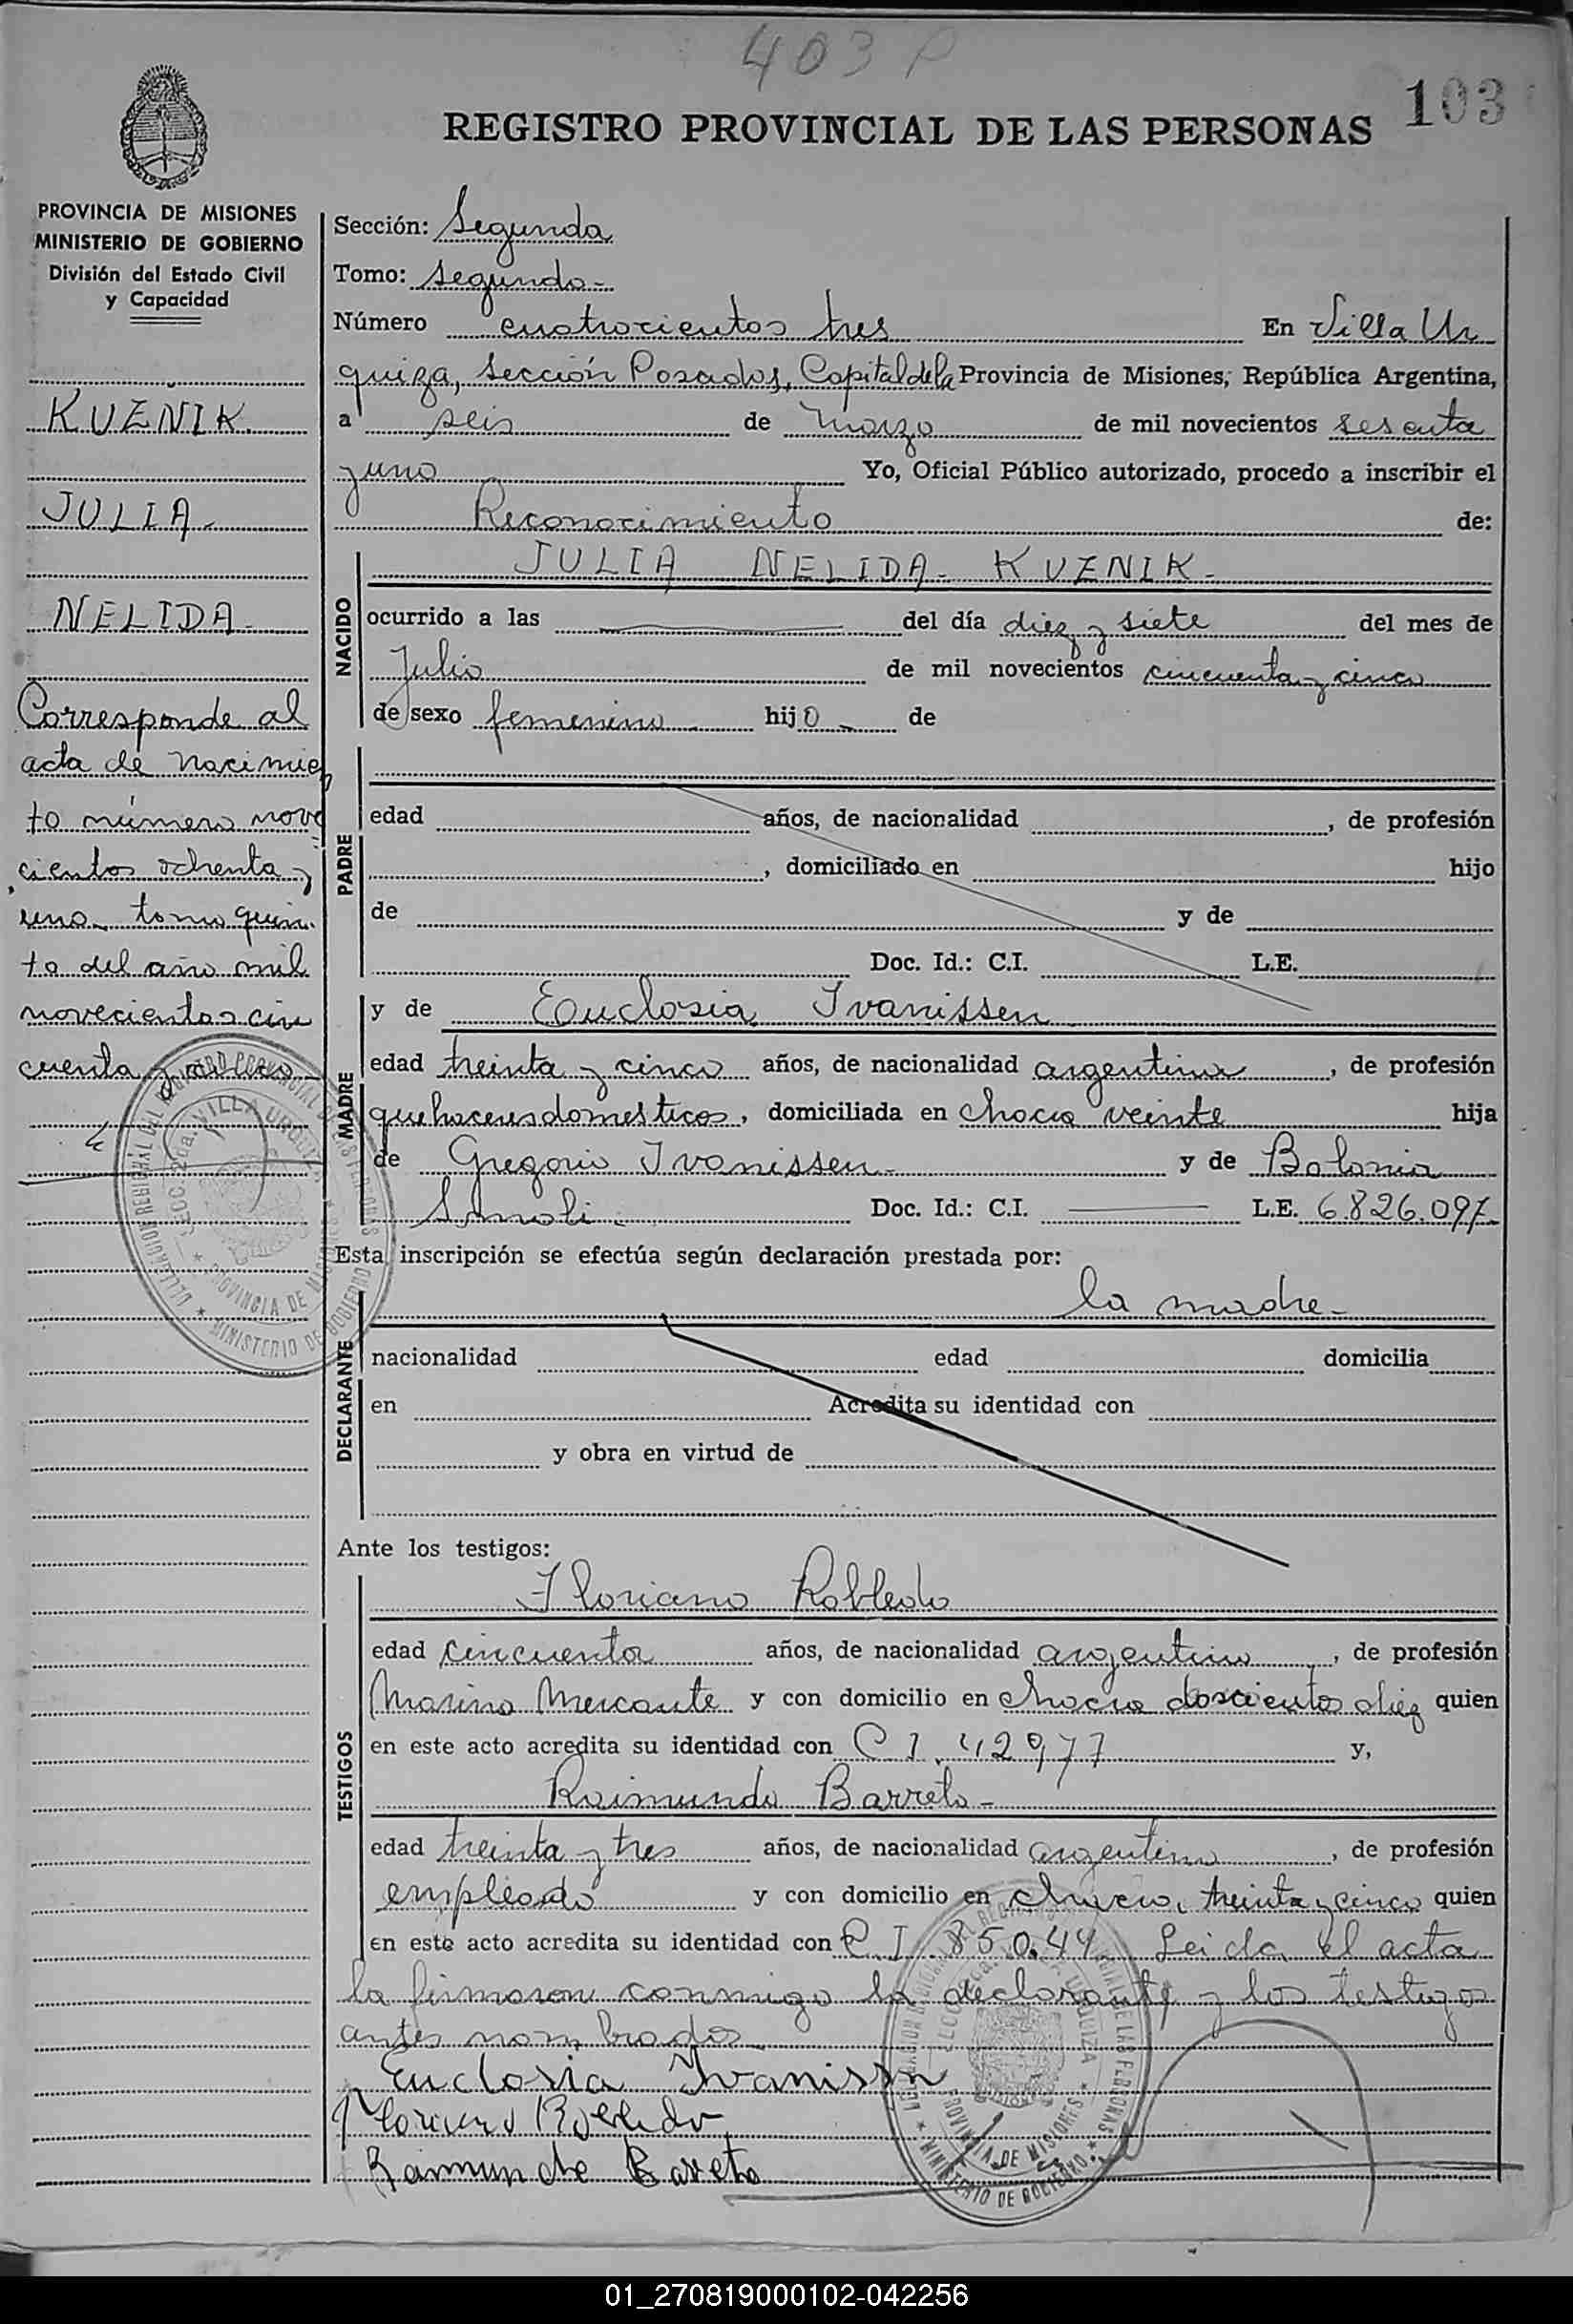 403 P
103
REGISTRO PROVINCIAL DE LAS PERSONAS
PROVINCIA DE MISIONES
MINISTERIO DE GOBIERNO
División del Estado Civil
y Capacidad
KUZNIK
JULIA
NELIDA
Corresponde al
acta de nacimien
to número nove
cientos ochenta y
uno tomo quin
to del año mil
novecientos cin
cuenta y cinco
Sección: Segunda
Tomo: segundo
Número cuatrocientos tres En Villa Ur
quiza, sección Posadas, Capital de la Provincia de Misiones, República Argentina,
a seis de marzo de mil novecientos sesenta
y uno Yo, Oficial Público autorizado, procedo a inscribir el
Reconocimiento de:
NACIDO
JULIA NELIDA KUZNIK
ocurrido a las del día diez y siete del mes de
Julio de mil novecientos cincuenta y cinco
de sexo femenino hijo de
PADRE
edad años, de nacionalidad , de profesión
, domiciliado en hijo
de y de
Doc. Id.: C.I. L.E.
MADRE
y de Euclosia Ivanissen
edad treinta y cinco años, de nacionalidad argentina , de profesión
quehaceres domesticos, domiciliada en chacra veinte hija
de Gregorio Ivanissen y de Bolonia
Doc. Id.: C.I. L.E. 6.826.097
Esta inscripción se efectúa según declaración prestada por:
DECLARANTE
la madre
nacionalidad edad domicilia
en Acredita su identidad con
y obra en virtud de
Ante los testigos:
TESTIGOS
Floriano Robledo
edad cincuenta años, de nacionalidad argentino , de profesión
Marino Mercante y con domicilio en chacra doscientos diez quien
en este acto acredita su identidad con C I. 42977 y,
Raimundo Barreto
edad treinta y tres años, de nacionalidad argentino , de profesión
empleado y con domicilio en chacra treinta y cinco quien
en este acto acredita su identidad con C. I. 85044 Leida el acta
la firmaron conmigo la declarante y los testigos
antes nombrados
Euclosia Ivanissn
Floriano Robledo
Raimundo Barreto
01_270819000102-042256